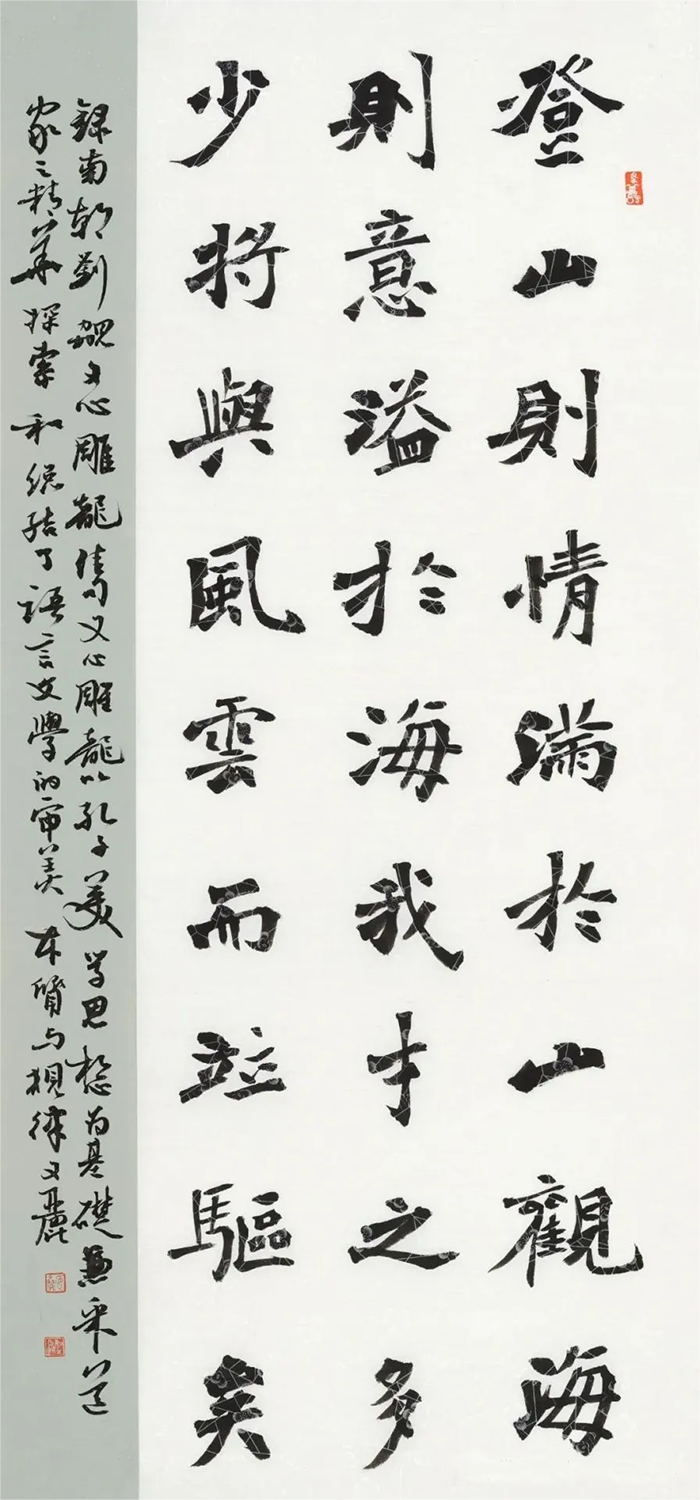 登山則情滿於山觀海
則意溢於海我才之多
少將與風雲而竝驅矣
錄南朝劉勰文心雕龍佳句文心雕龍以孔子美學思想为基礎兼采道
家之精華探索和總結了語言文學的審美本質与規律文麗